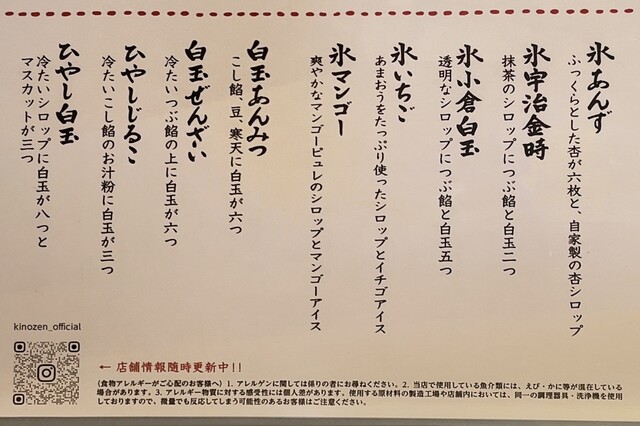 氷あんず
ふっくらとした杏が六枚と、自家製の杏シロップ
氷宇治金時
抹茶のシロップにつぶ餡と白玉二つ
氷小倉白玉
透明なシロップにつぶ餡と白玉五つ
氷いちご
あまおうをたっぷり使ったシロップとイチゴアイス
氷マンゴー
爽やかなマンゴーピュレのシロップとマンゴーアイス
白玉あんみつ
こし餡、豆、寒天に白玉が六つ
白玉ぜんざい
冷たいつぶ餡の上に白玉が六つ
ひやしじるこ
冷たいこし餡のお汁粉に白玉が三つ
ひやし白玉
冷たいシロップに白玉が八つと
マスカットが三つ
kinozen_official
← 店舗情報随時更新中!!
(食物アレルギーがご心配のお客様へ) 1. アレルゲンに関しては係りの者にお尋ねください。2. 当店で使用している魚介類には、えび・かに等が混在している
場合があります。3. アレルギー物質に対する感受性には個人差があります。使用する原材料の製造工場や店舗内においては、同一の調理器具・洗浄機を使用
しておりますので、微量でも反応してしまう可能性のあるお客様はご注意ください。